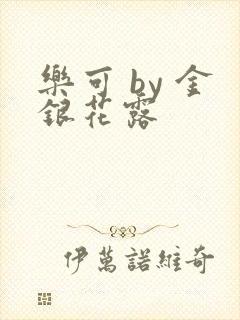 樂可 by 金
銀花露
伊萬諾維奇